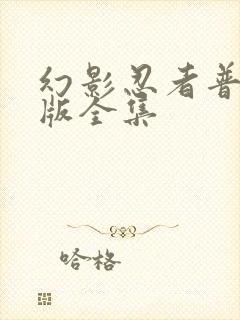 幻影忍者普
版全集
哈格